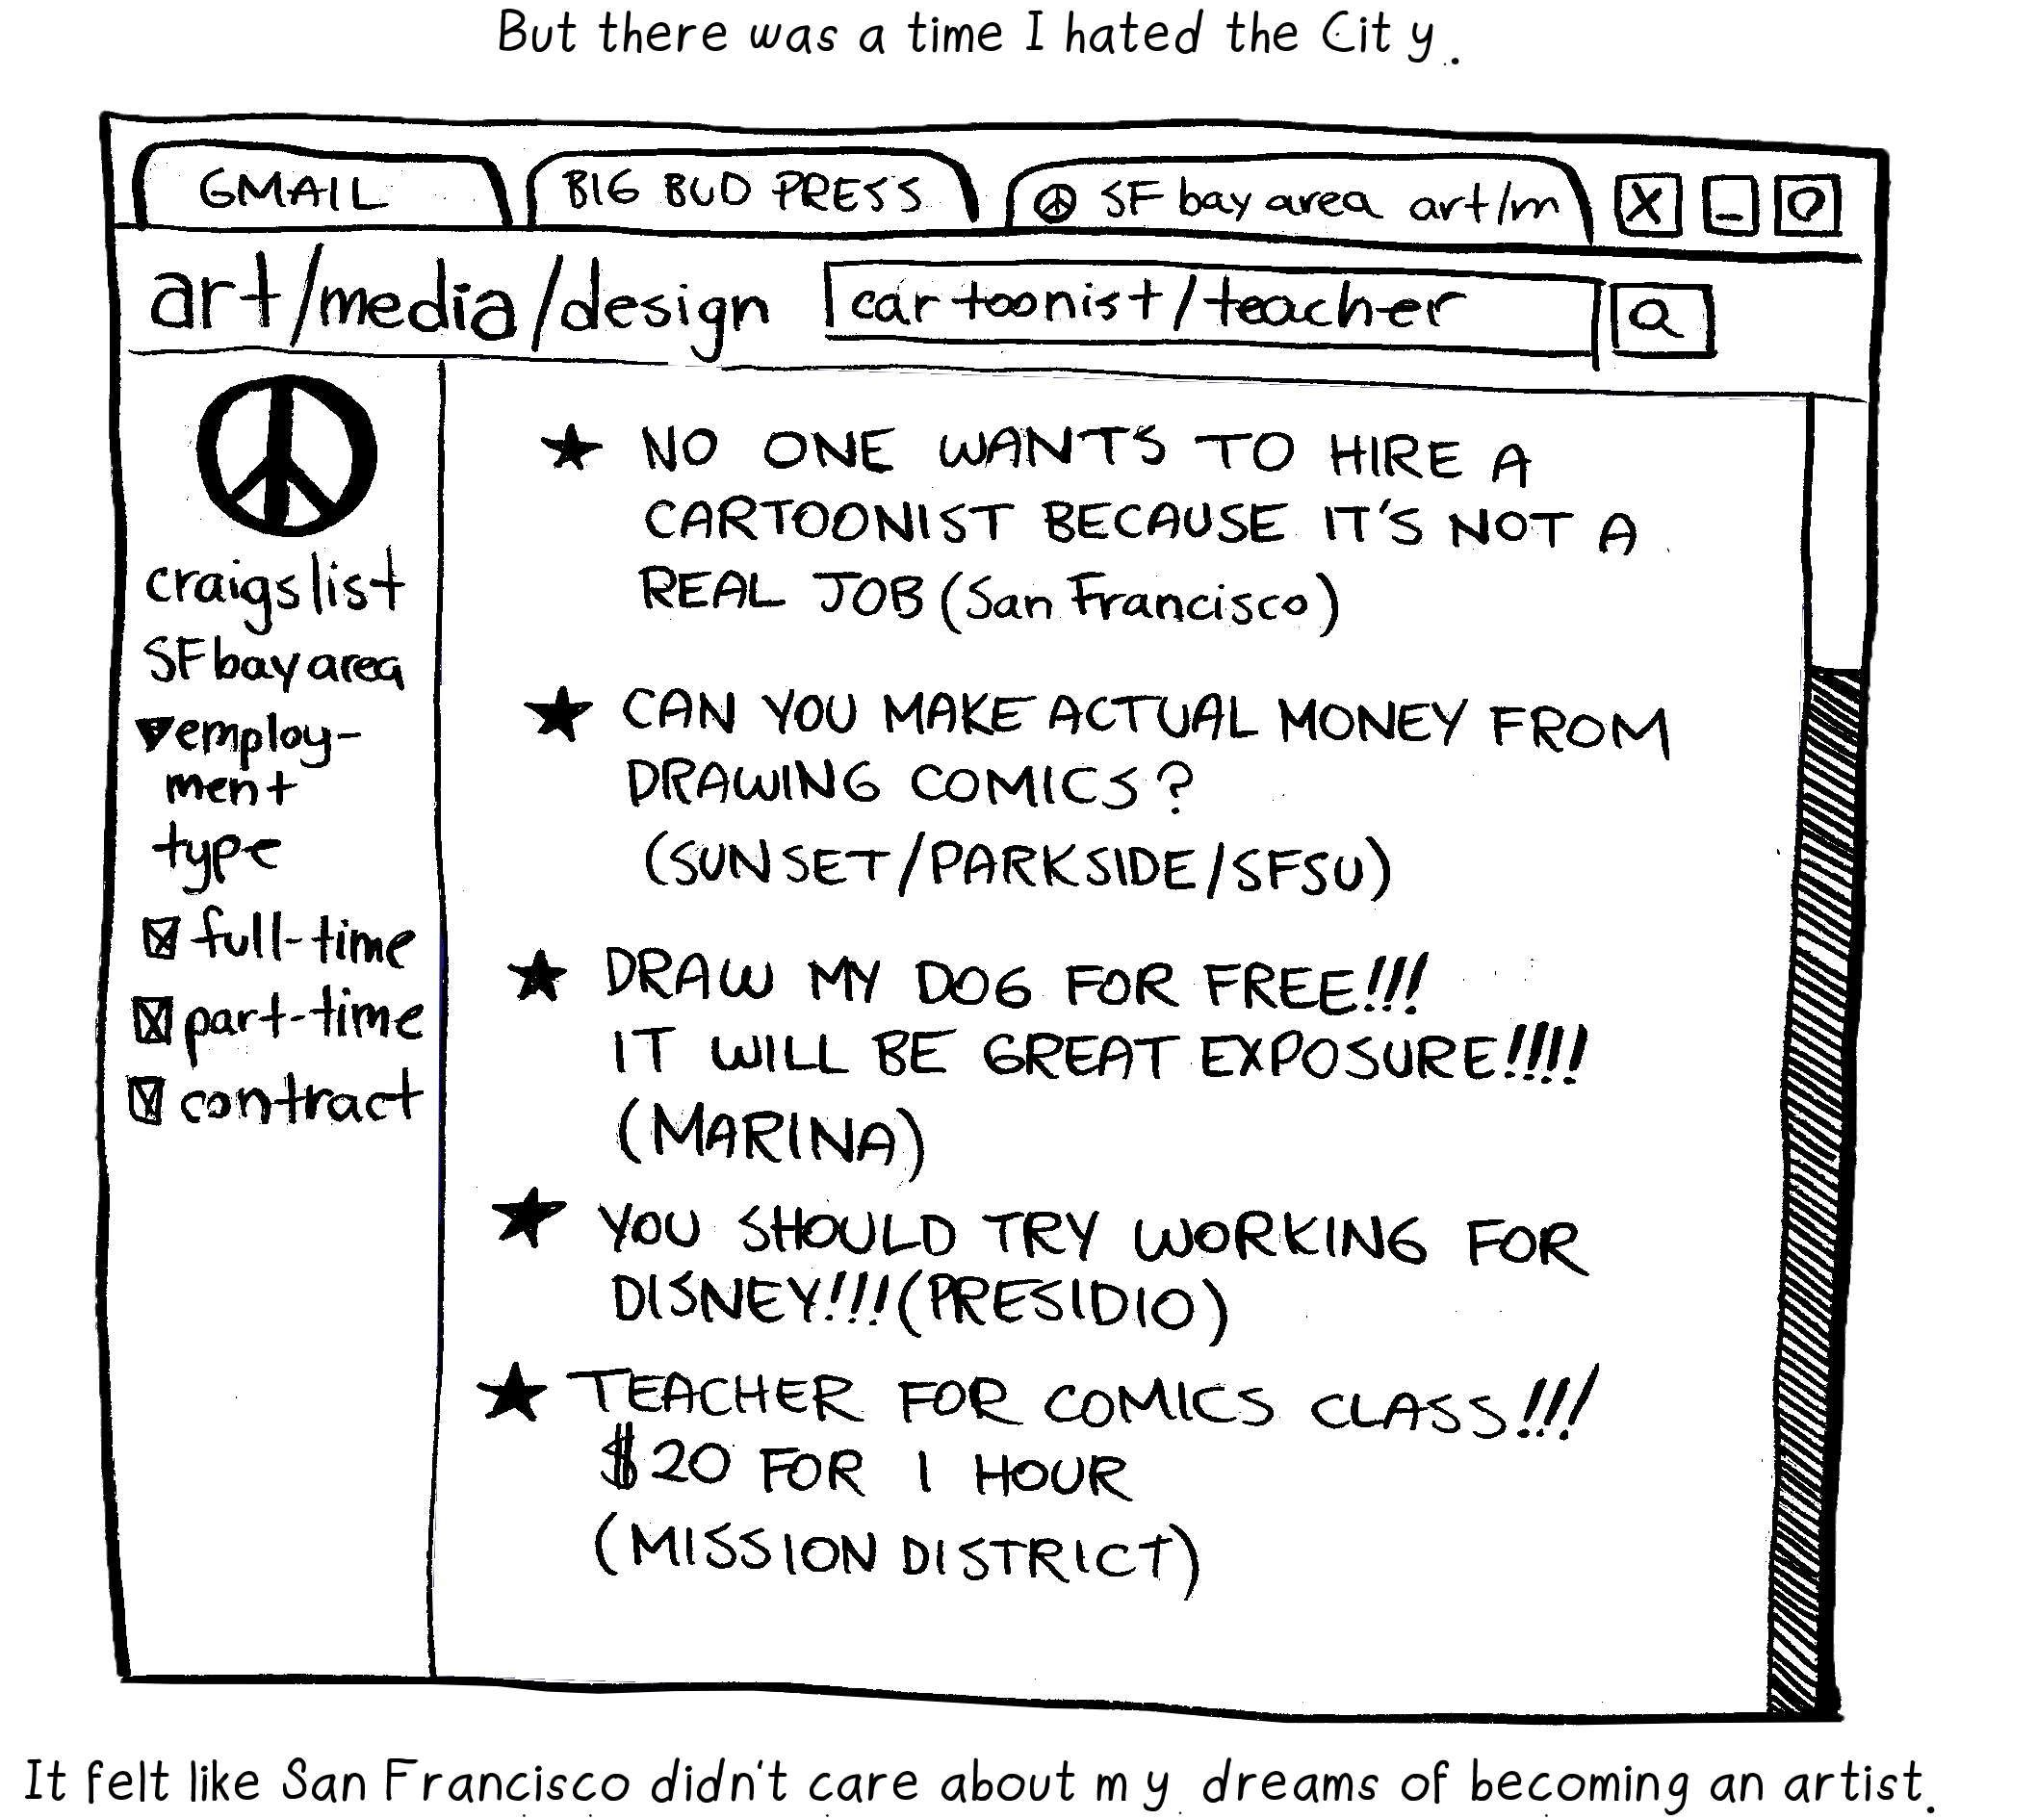 But there was a time I hated the City.
GMAIL
BIG BUD PRESS
SF bay area art/m
art/media/design
cartoonist/teacher
craigslist
SF bay area
employ-
ment
type
full-time
part-time
contract
NO ONE WANTS TO HIRE A
CARTOONIST BECAUSE IT'S NOT A
REAL JOB (San Francisco)
CAN YOU MAKE ACTUAL MONEY FROM
DRAWING COMICS?
(SUNSET/PARKSIDE/SFSU)
DRAW MY DOG FOR FREE!!!
IT WILL BE GREAT EXPOSURE!!!!
(MARINA)
YOU SHOULD TRY WORKING FOR
DISNEY!!! (PRESIDIO)
TEACHER FOR COMICS CLASS!!!
$20 FOR 1 HOUR
(MISSION DISTRICT)
It felt like San Francisco didn't care about my dreams of becoming an artist.